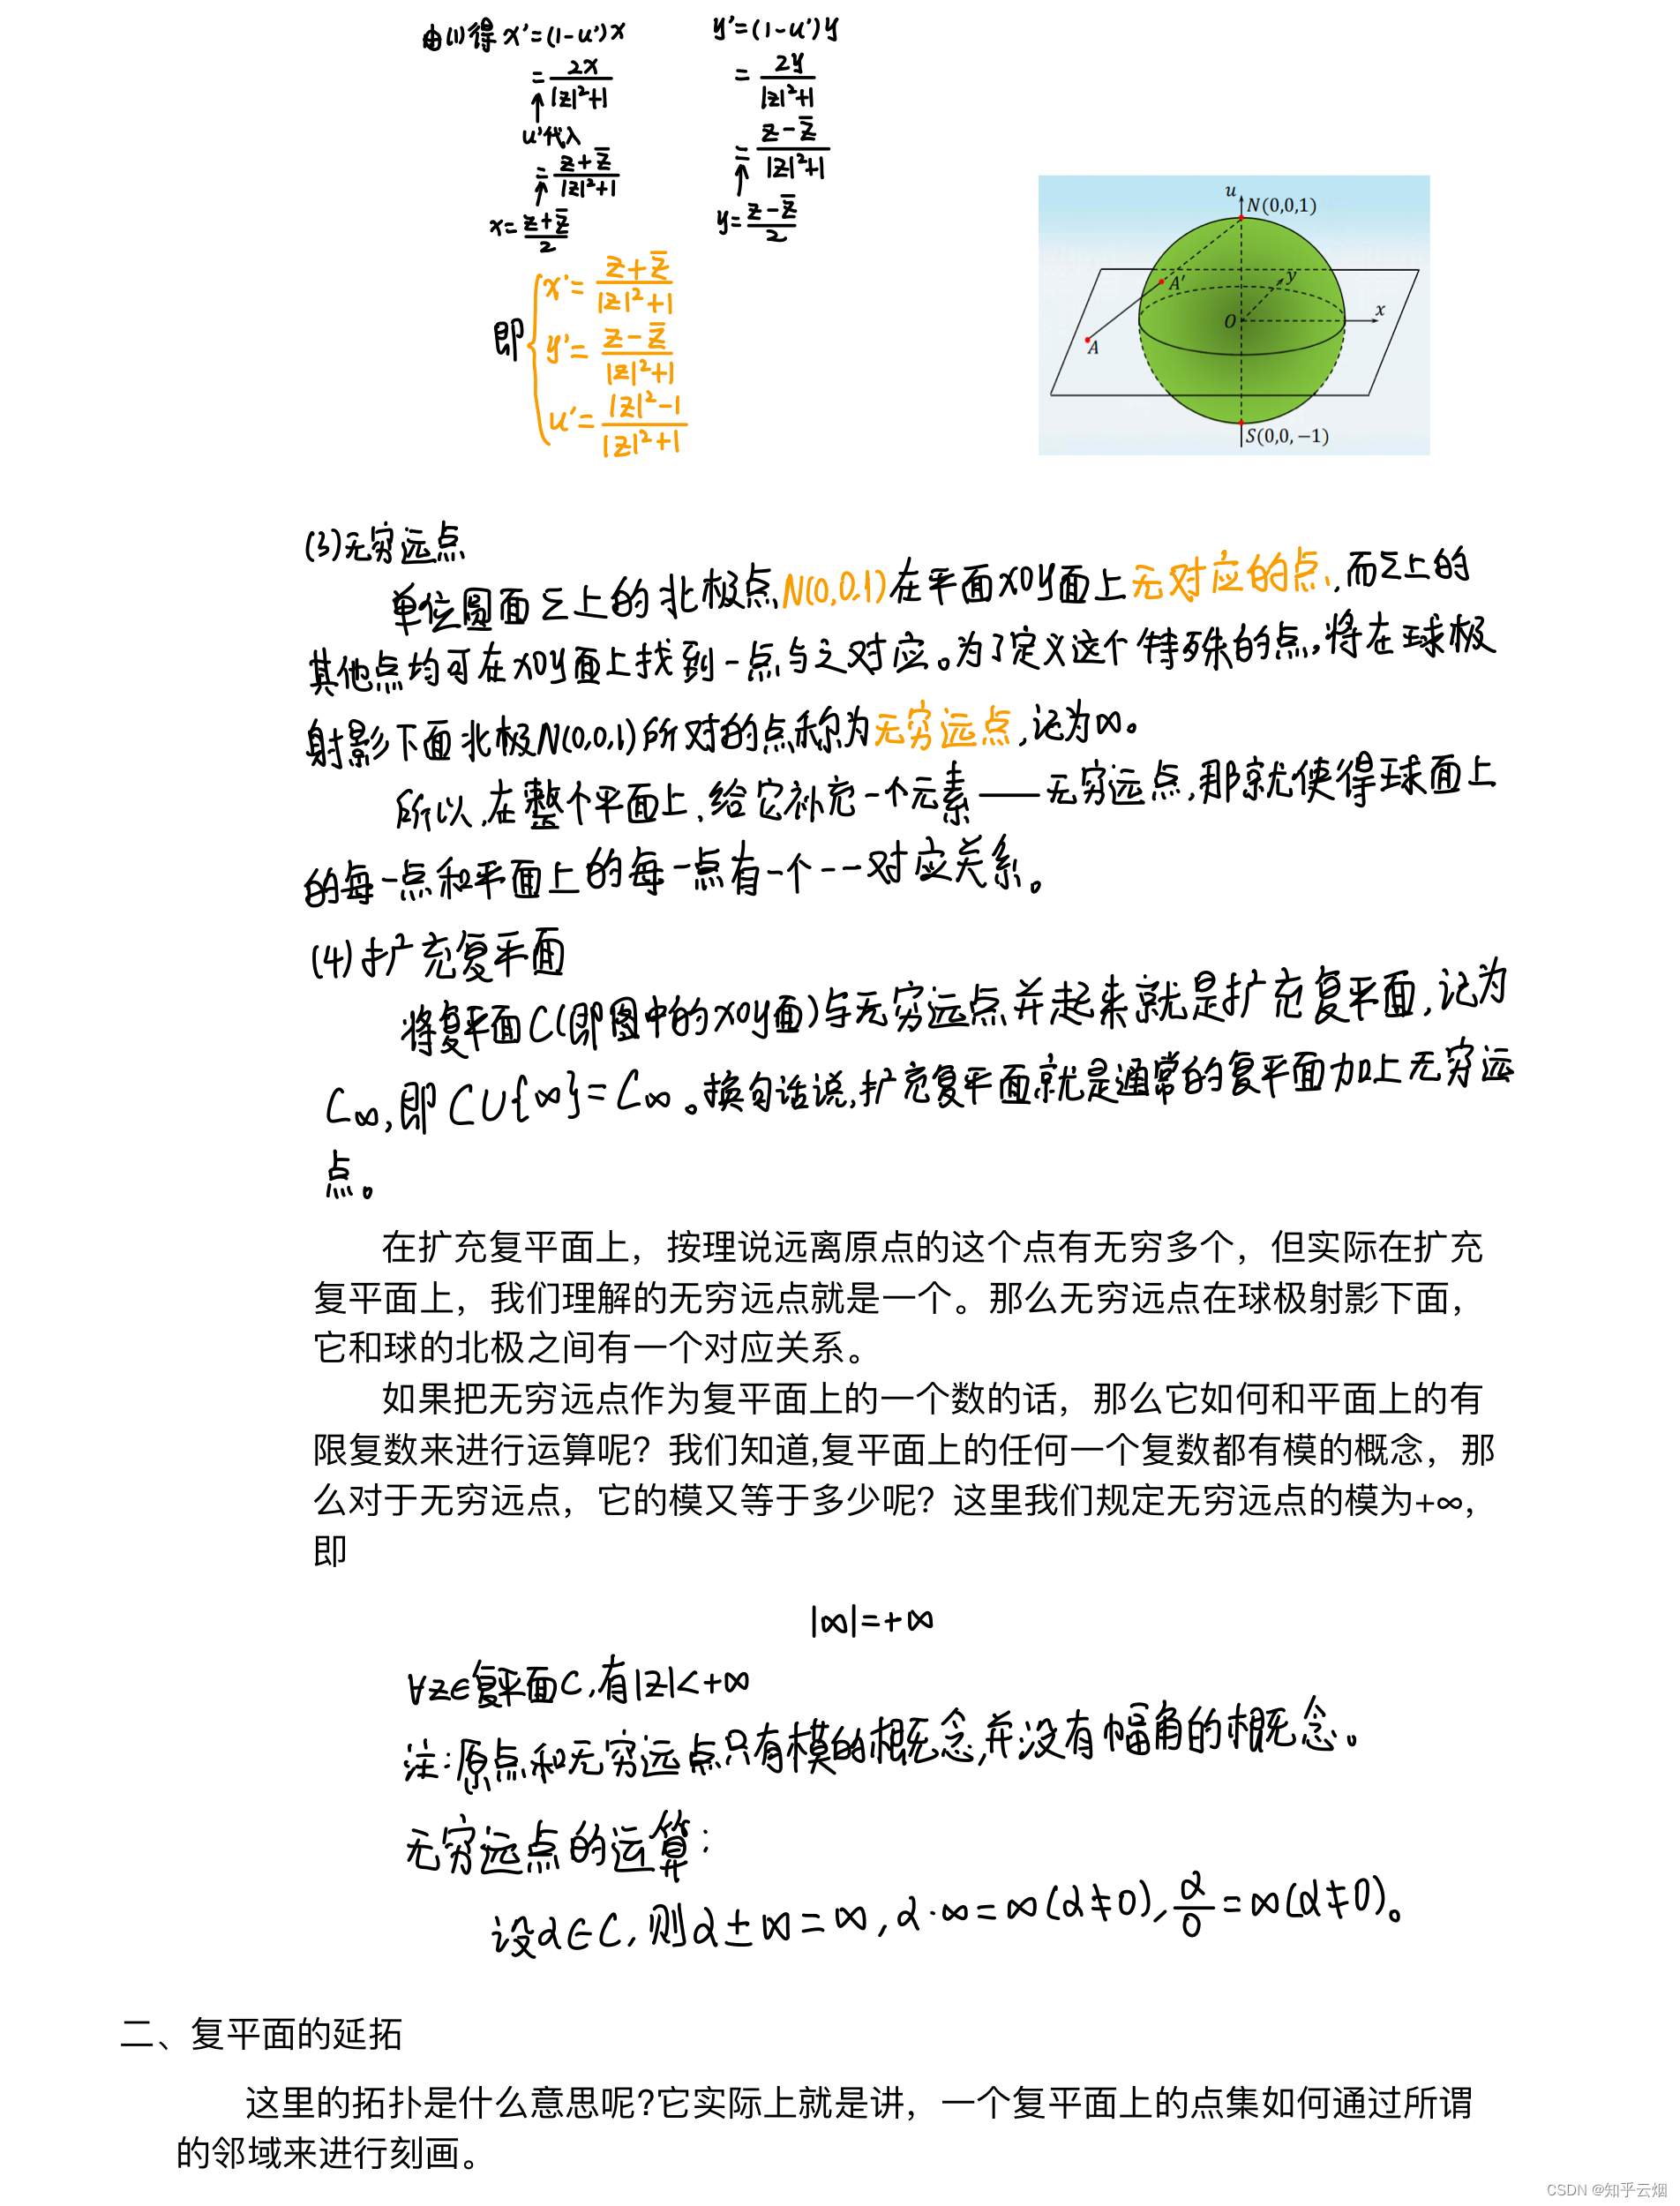 由(1)得 x'=(1-u')x  y'=(1-u')y
=2x/(|z|²+1)  =2y/(|z|²+1)
u'代入
=(z+z̄)/(|z|²+1)  =(z-z̄)/(|z|²+1)
x=(z+z̄)/2  y=(z-z̄)/2
即 x'=(z+z̄)/(|z|²+1)
y'=(z-z̄)/(|z|²+1)
u'=(|z|²-1)/(|z|²+1)
u
N(0,0,1)
A'
y
x
O
A
S(0,0,−1)
(3)无穷远点
单位圆面Σ上的北极点N(0,0,1)在平面xOy面上无对应的点,而Σ上的
其他点均可在xOy面上找到一点与之对应。为了定义这个特殊的点,将在球极
射影下面北极N(0,0,1)所对的点称为无穷远点,记为∞。
所以,在整个平面上,给它补充一个元素——无穷远点,那就使得球面上
的每一点和平面上的每一点有一个一一对应关系。
(4)扩充复平面
将复平面C(即图中的xOy面)与无穷远点并起来就是扩充复平面,记为
C∞,即C∪{∞}=C∞。换句话说,扩充复平面就是通常的复平面加上无穷远
点。
在扩充复平面上，按理说远离原点的这个点有无穷多个，但实际在扩充
复平面上，我们理解的无穷远点就是一个。那么无穷远点在球极射影下面，
它和球的北极之间有一个对应关系。
如果把无穷远点作为复平面上的一个数的话，那么它如何和平面上的有
限复数来进行运算呢？我们知道,复平面上的任何一个复数都有模的概念，那
么对于无穷远点，它的模又等于多少呢？这里我们规定无穷远点的模为+∞，
即
|∞|=+∞
∀z∈复平面C,有|z|<+∞
注:原点和无穷远点只有模的概念,并没有幅角的概念。
无穷远点的运算:
设α∈C,则α±∞=∞,α·∞=∞(α≠0),α/0=∞(α≠0)。
二、复平面的延拓
这里的拓扑是什么意思呢?它实际上就是讲，一个复平面上的点集如何通过所谓
的邻域来进行刻画。
CSDN @知乎云烟